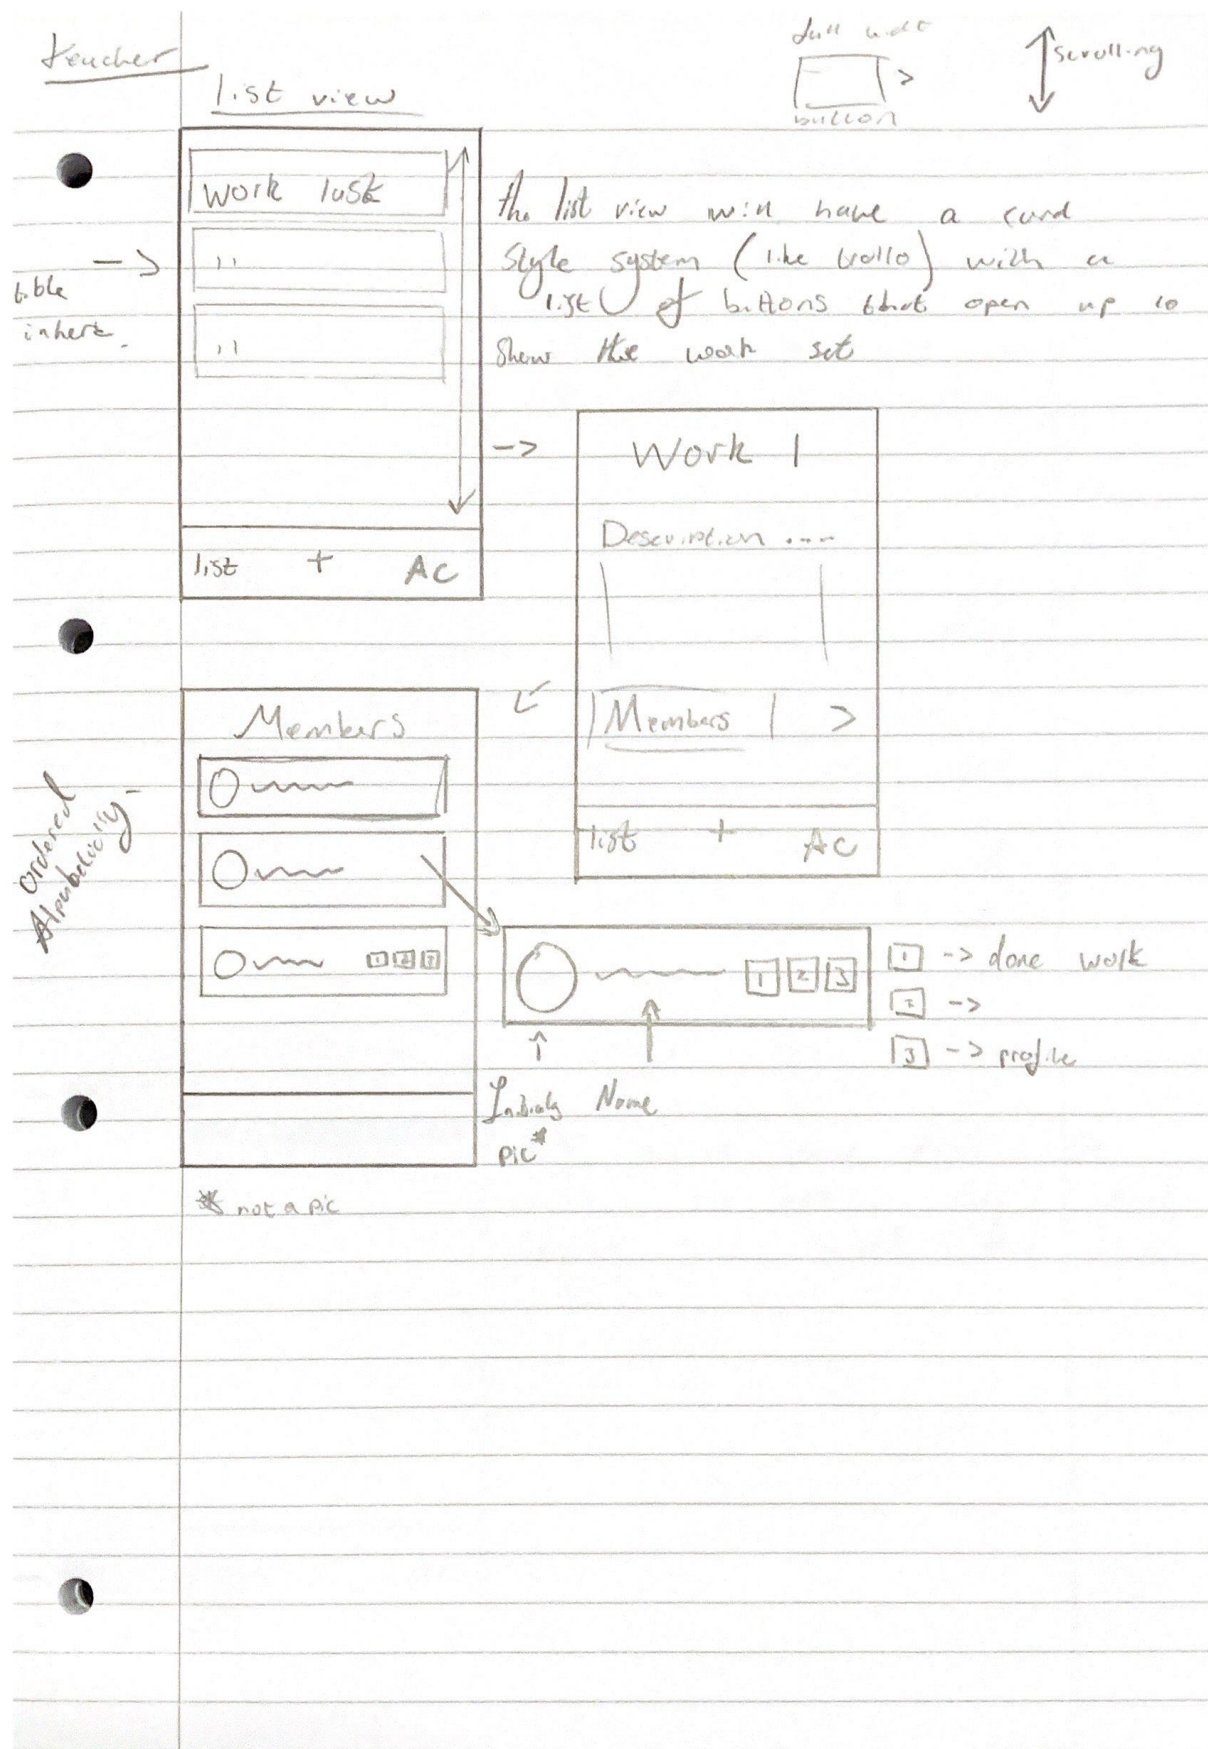 teacher
list view
full widt
button
scrolling
work task
,,
,,
the list view will have a card
style system (like trello) with a
list of buttons that open up to
show the work set
table
inherit.
list + AC
Work 1
Description ....
Members >
list + AC
Members
Ordered
Alphabetically
1 2 3
1 2 3
1 -> done work
2 ->
3 -> profile
Initials
pic*
Name
* not a pic